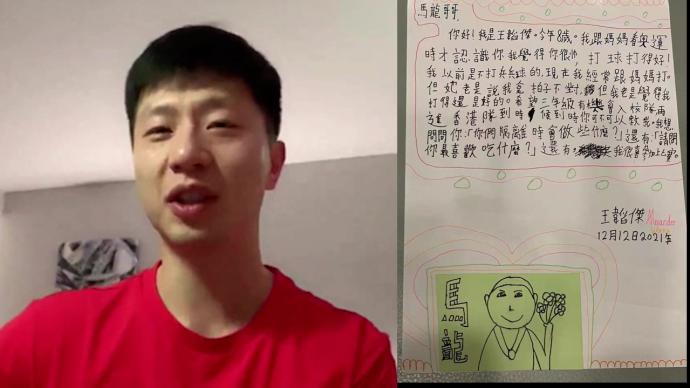 馬龍哥哥
你好!我是王韜傑。今年8歲。我跟媽媽看奧運
時才認識你,我覺得你很帥,打球打得好!
我以前是不打乒乓球的,現在我經常跟媽媽打。
但她老是說我拿拍不對,但我老是覺得我
打得還是好的。希望三年級有機會入校隊,再
進香港隊到時候到時你可不可以教我。我想
問問你:「你們隔離時會做些什麼?」還有「請問
你最喜歡吃什麼?」還有:我很喜
王韜傑
12月12日2021年
馬龍